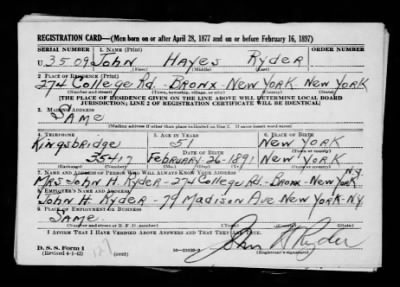 REGISTRATION CARD—(Men born on or after April 28, 1877 and on or before February 16, 1897)
SERIAL NUMBER 1. NAME (Print) ORDER NUMBER
U 3509 John Hayes Ryder
2. PLACE OF RESIDENCE (Print)
274 College Rd. - Bronx - New York New York
[THE PLACE OF RESIDENCE GIVEN ON THE LINE ABOVE WILL DETERMINE LOCAL BOARD
JURISDICTION; LINE 2 OF REGISTRATION CERTIFICATE WILL BE IDENTICAL]
3. MAILING ADDRESS
Same
[Mailing address if other than place indicated on line 2. If same insert word same]
4. TELEPHONE 5. AGE IN YEARS 6. PLACE OF BIRTH
Kingsbridge 51 New York
DATE OF BIRTH
February - 26 - 1891 New York
7. NAME AND ADDRESS OF PERSON WHO WILL ALWAYS KNOW YOUR ADDRESS
Mrs John H. Ryder - 274 College Rd. - Bronx - New York N.Y.
8. EMPLOYER'S NAME AND ADDRESS
John H. Ryder - 79 Madison Ave New York - N.Y.
9. PLACE OF EMPLOYMENT OR BUSINESS
Same
I AFFIRM THAT I HAVE VERIFIED ABOVE ANSWERS AND THAT THEY ARE TRUE.
John H Ryder
D. S. S. Form 1
(Revised 4-1-42) (over) (Registrant's signature)